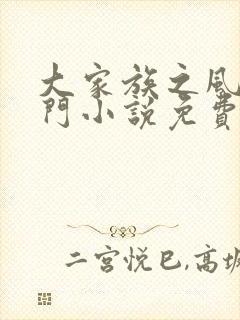 大家族之風
門小說免費
二宮悅巳,高坂